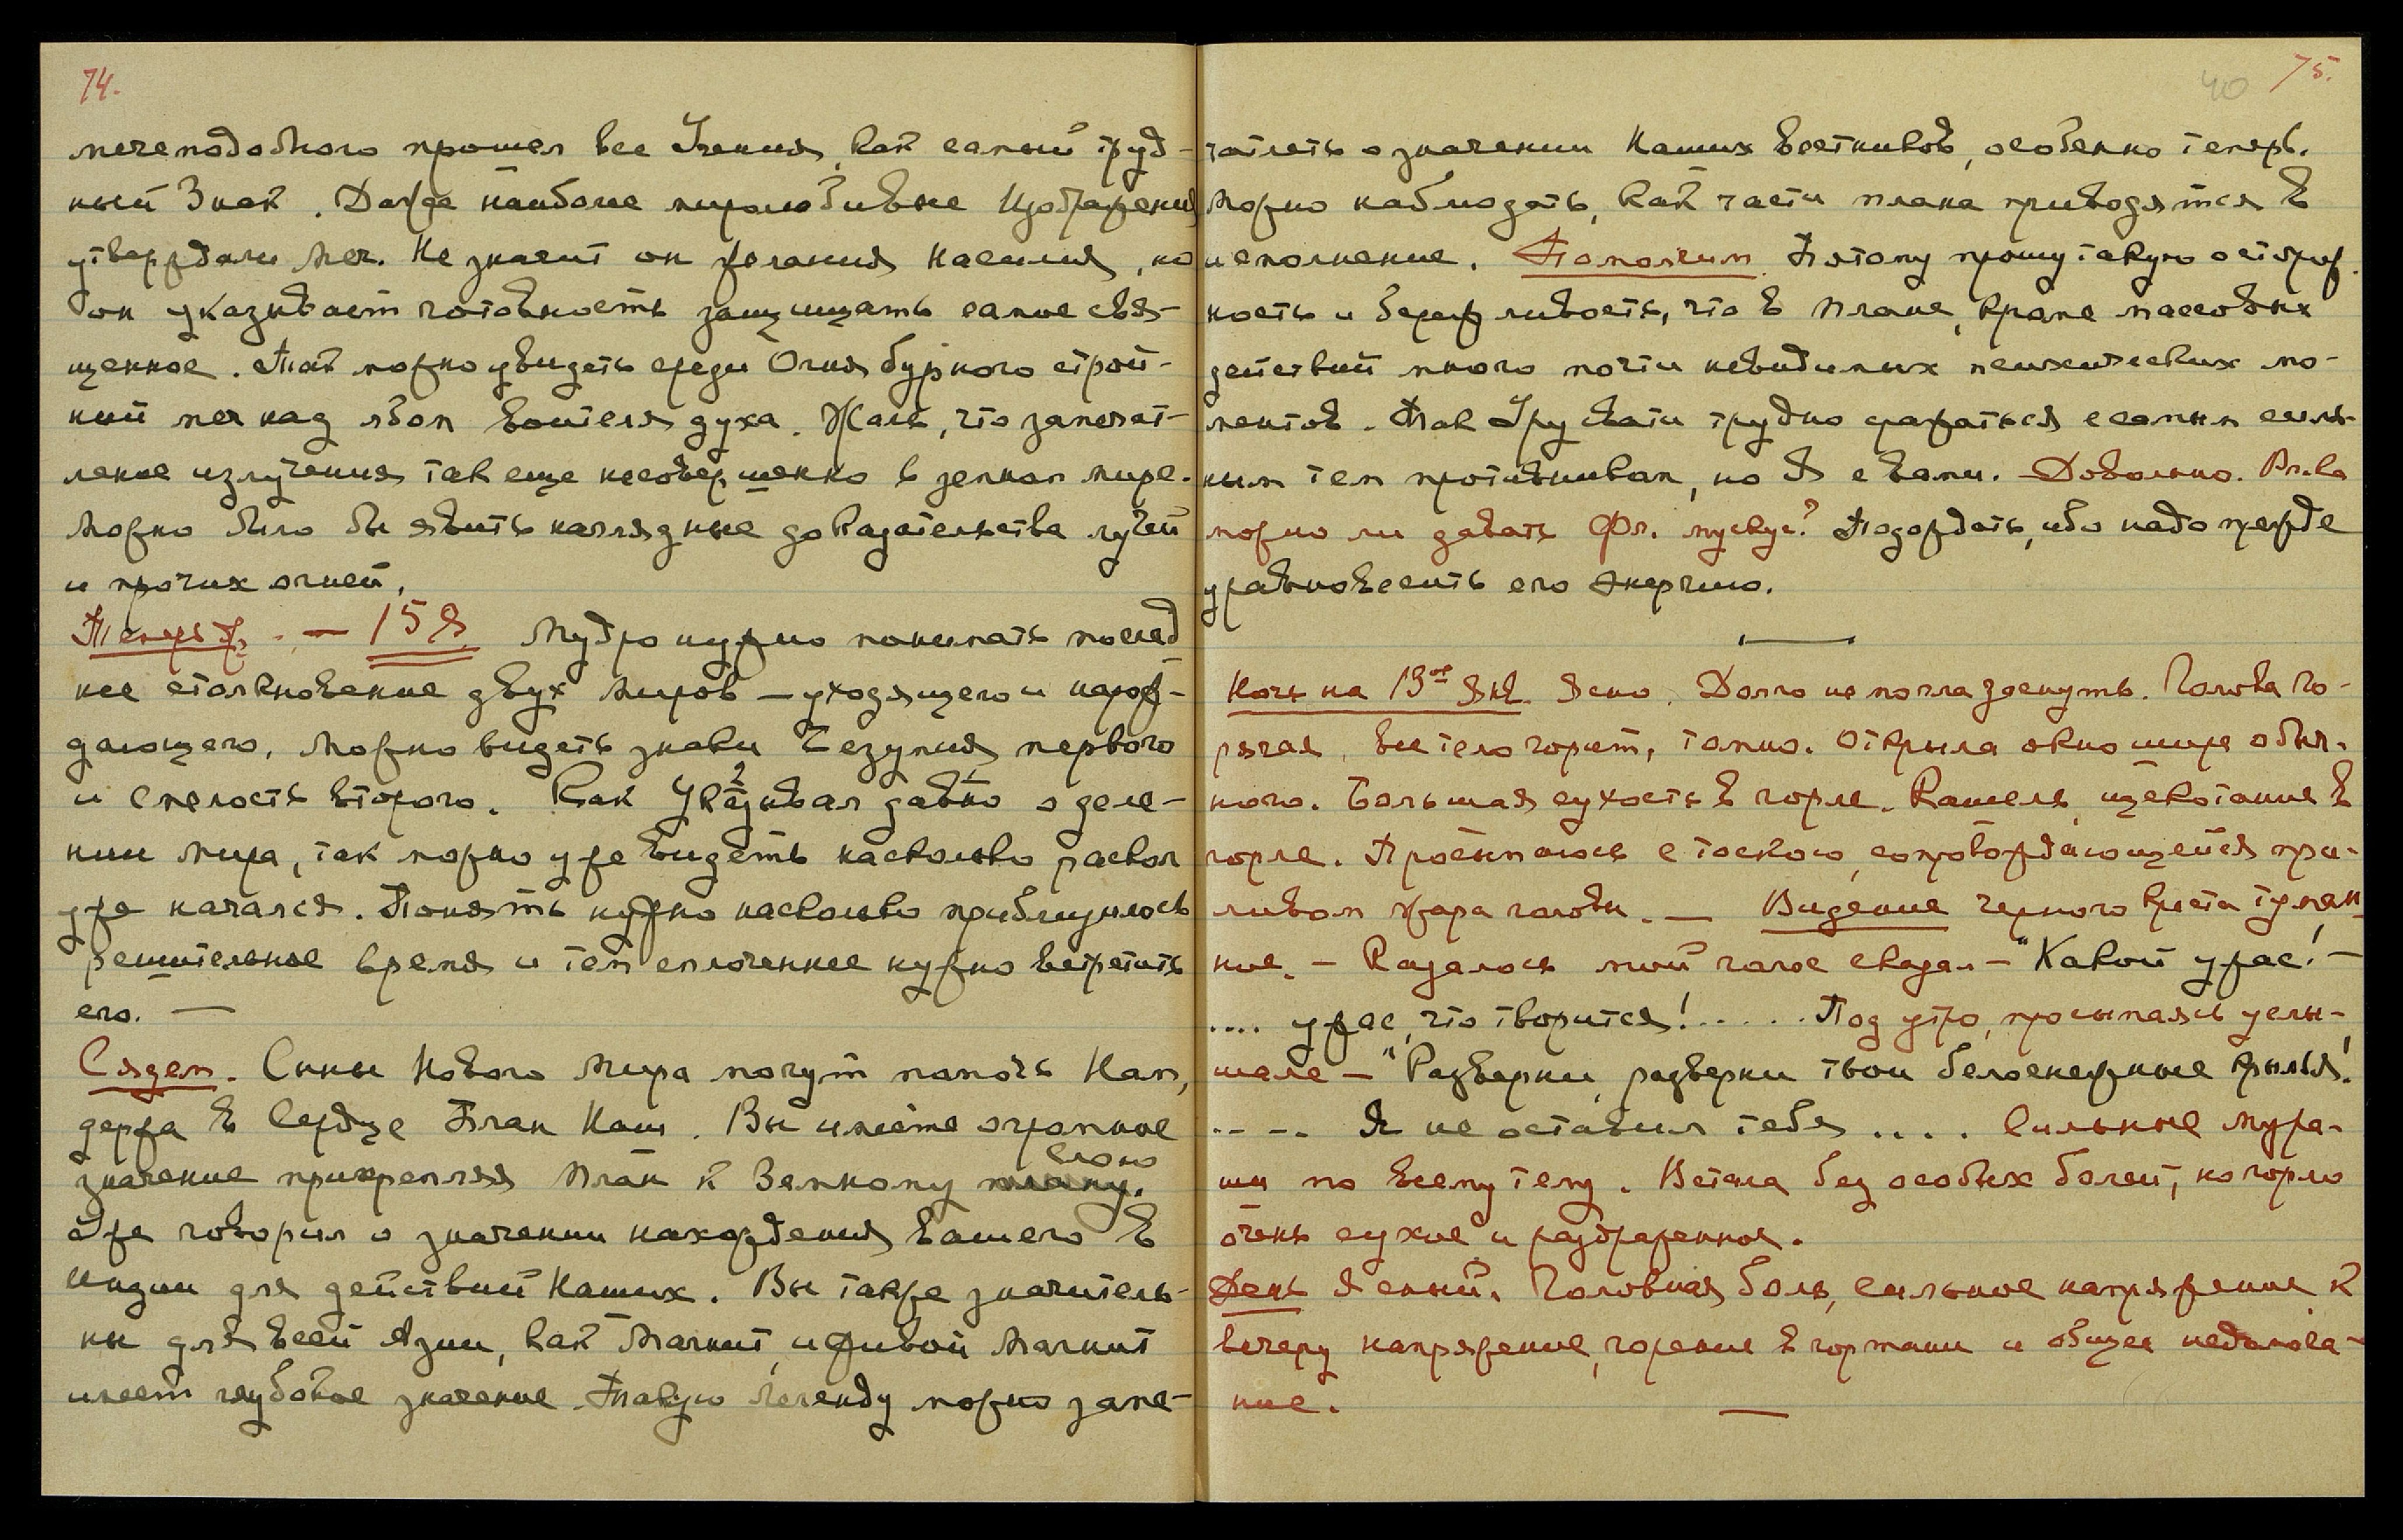 74.
мечеподобного прошел все Учения, как самый труд-
ный Знак. Даже наиболее миролюбивые Изображения
утверждали меч. Не значит он желания насилия, но
он указывает готовность защищать самое свя-
щенное. Так можно увидеть среди Огня бурного строй-
ный меч над лбом воителя духа. Жаль, что запечат-
ление излучения так еще несовершенно в земном мире.
Можно было бы явить наглядные доказательства лучей
и прочих огней.
Теперь ж. — 15 Я Мудро нужно понимать послед
нее столкновение двух миров — уходящего и нарож-
дающего. Можно видеть знаки Безумия первого
и смелость второго. Как Указывал давно о деле-
нии мира, так можно уже видеть насколько раскол
уже начался. Понять нужно насколько приблизилось
решительное время и тем сплоченнее нужно встретить
его. —
Сядем. Сыны Нового Мира могут помочь Нам,
держа в Сердце План Наш. Вы имеете огромное
значение прикрепляя План к Земному плану.
Уже говорил о значении нахождения вашего в
Индии для действий Наших. Вы также значитель-
ны для всей Азии, как Магнит, и живой магнит
имеет глубокое значение. Такую легенду можно запе-
40 75.
чатлеть о значении Наших Вестников, особенно теперь.
Можно наблюдать, как части плана приводятся в
исполнение. Помолчим. Потому прошу такую осторож.
ность и бережливость, что в Плане, кроме массовых
действий много почти невидимых психических мо-
ментов. Так Урусвати трудно сражаться с самым силь-
ным тем противником, но Я с вами. Довольно. Вл-ка
можно ли давать Фл. мускус? Подождать, ибо надо прежде
уравновесить его энергию.
Ночь на 19ое Янв. Ясно. Долго не могла заснуть. Голова го-
рячая, все тело горит, томно. Открыла окно шире обыч-
ного. Большая сухость в горле. Кашель, щекотание в
горле. Просыпалась с тоскою, сопровождающейся при-
ливом жара головы. — Видение черного креста туман
ное. — Казалось мой голос сказал — "Какой ужас! —
.... ужас, что творится! ..... Под утро, просыпаясь услы-
шала — "Разверни, разверни твои белоснежные крылья!
.... Я не оставил тебя .... Сильные мура-
ши по всему телу. Встала без особых болей, но горло
очень сухое и раздраженное.
День Ясный. Головная боль, сильное напряжение, к
вечеру напряжение, горение в гортани и общее недомога-
ние.